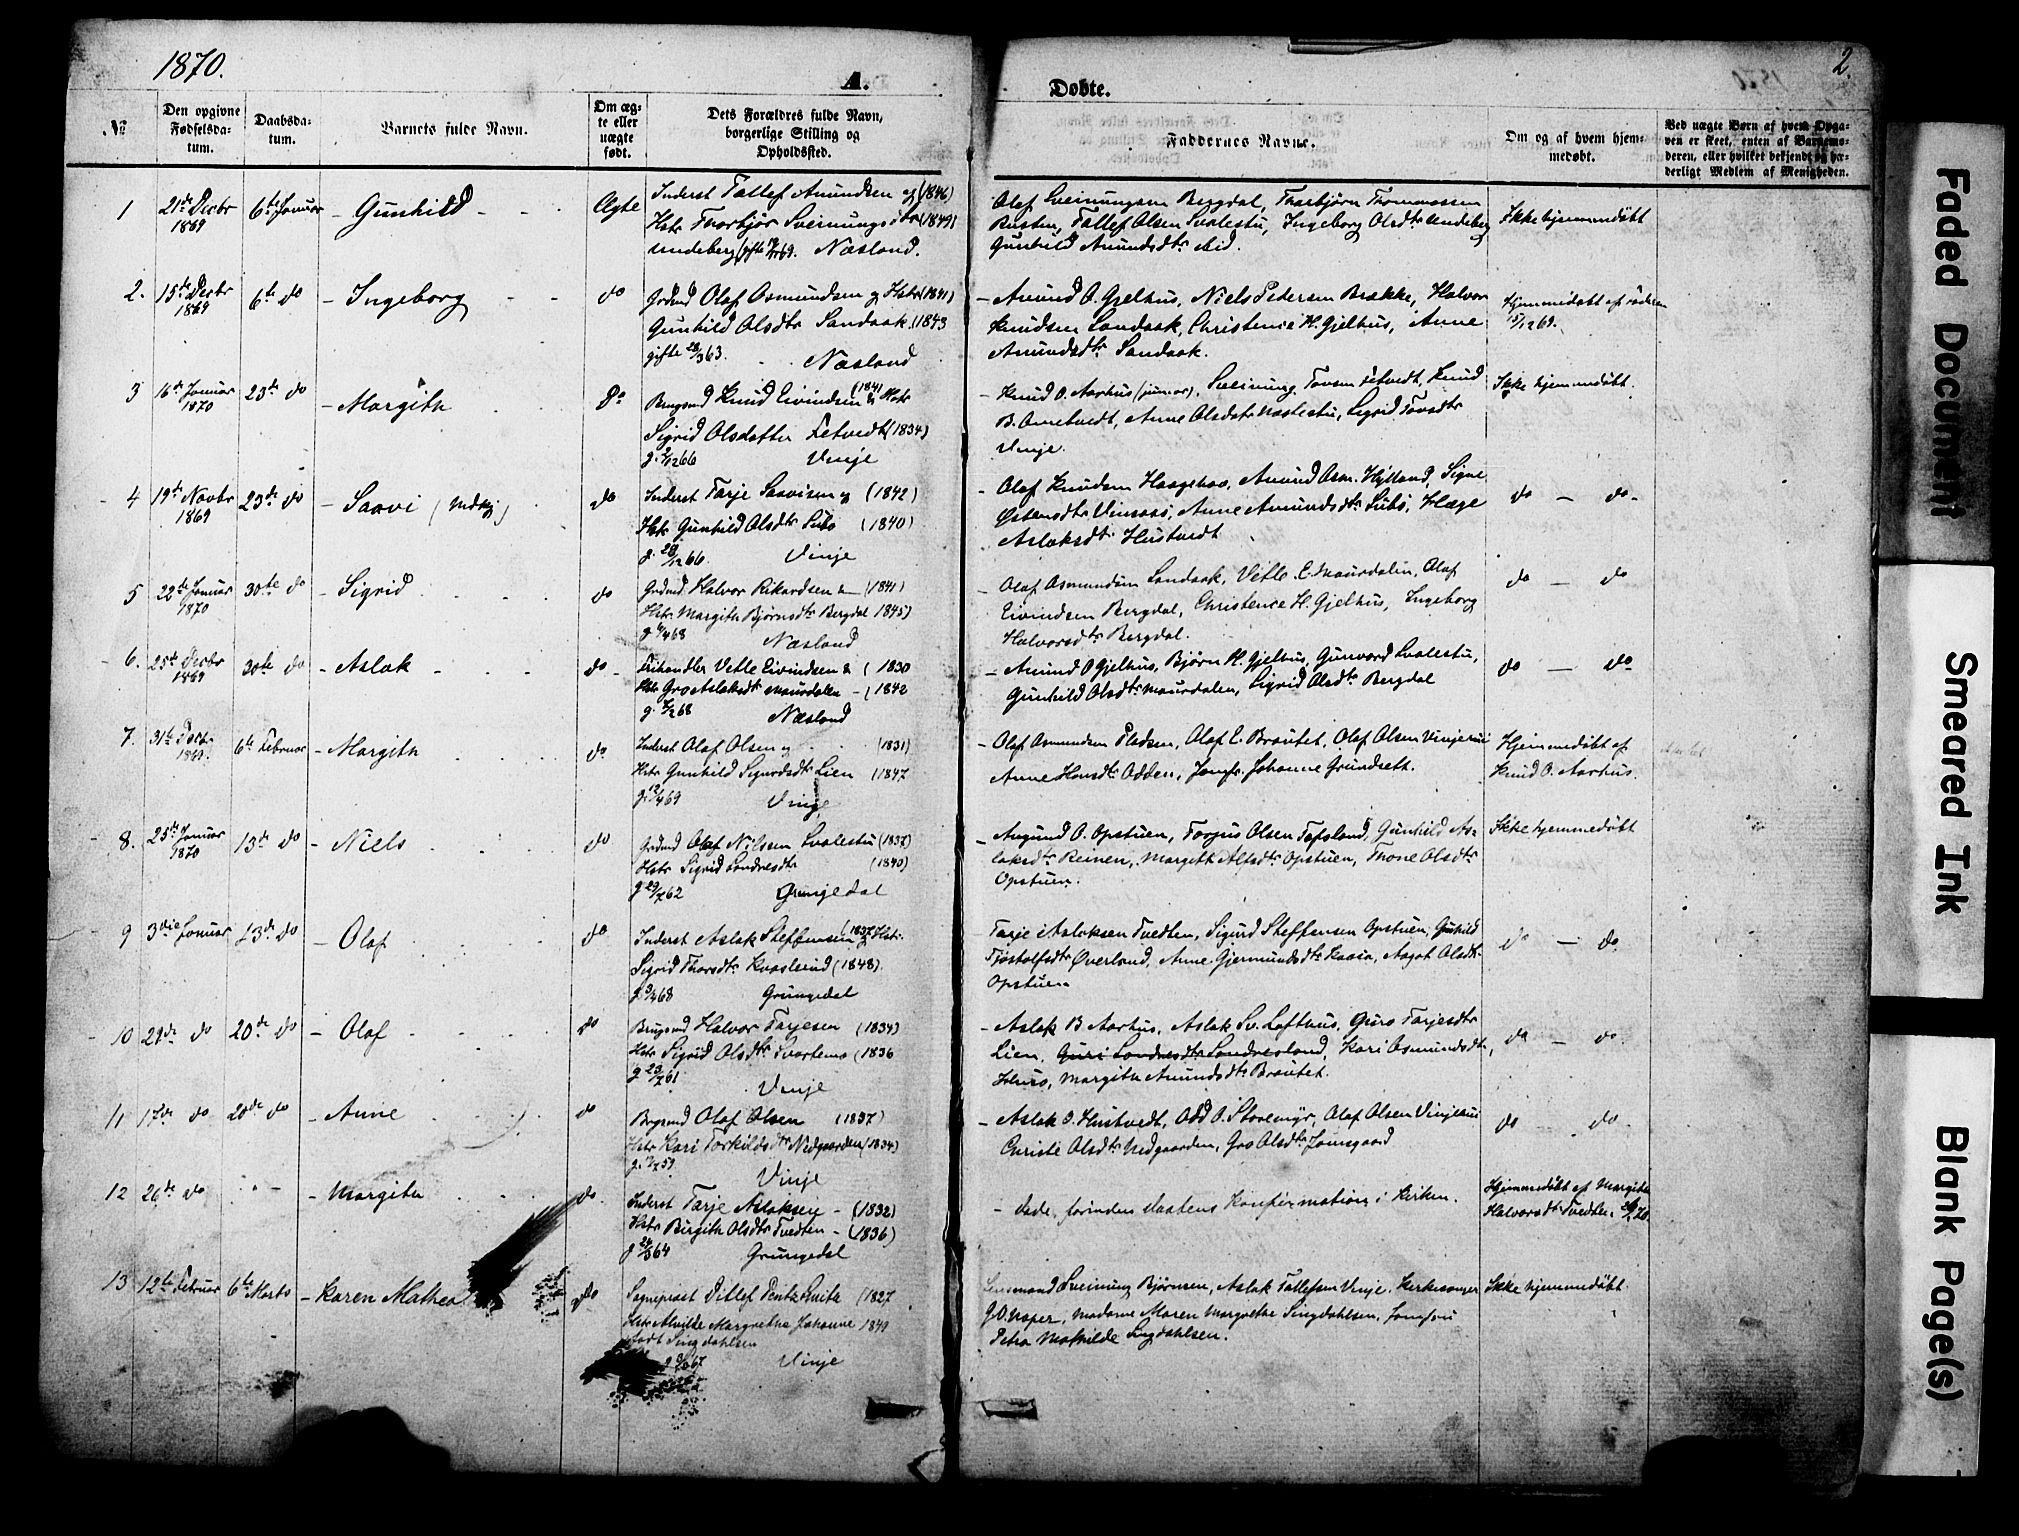 1870.
A.
Døbte.
2.
№
Den opgivne Fødselsdatum.
Daabsdatum.
Barnets fulde Navn.
Om ægte eller uægte født.
Dets Forældres fulde Navn, borgerlige Stilling og Opholdssted.
Faddernes Navne.
Om og af hvem hjemmedøbt.
Ved uægte Børn af hvem Opgaven er skeet, enten af Barnemoderen, eller hvilket bekjendt og hæderligt Medlem af Menigheden.
1 21de Decbr 1869 6te Januar – Gunhild Ægte
Inderst Tallef Amundsen og (1846)
Hstr Thorbjør Sveinungsdtr (1849)
Næsland.
Olaf Sveinungsen Bergdal, Thorbjørn Thommassen
Rusten, Tallef Olsen Svalestu, Ingeborg Olsdtr Undeberg
Gunhild Amundsdtr ibid.
Ikke hjemmedøbt
2. 15de Decbr 1869 6te do – Ingeborg do
Grdmd Olaf Osmundsen og Hstr (1841)
Gunhild Olsdtr Sandaak. (1843
gifte 28/3 63. Næsland
– Amund O. Gjelhus, Niels Pedersen Brække, Halvor
Knudsen Sandaak, Christence H. Gjelhus, Anne
Amundsdtr Sandaak.
Hjemmedøbt af Faderen
15/12 69.
3 16de Januar 1870 23de do – Margith Do
Brugsmd Knud Eivindsen & Hstr (1841
Sigrid Olsdatter Fetvedt (1834)
g. 2/12 66 Vinje
– Knud O. Aarhus (junior). Sveinung Tovsen Fetvedt, Knud
B. Ornetvedt, Anne Olsdatr Naslestu, Sigrid Tovsdtr
Vinje.
Ikke hjemmedøbt.
4 19de Novbr 1869 23de do – Saavi do
Inderst Tarje Saavisen og (1842)
Hstr Gunhild Olsdtr Subø (1840)
g. 28/12 66 Vinje
– Olaf Knudsen Haagehov, Amund Osm. Hylland, Signe
Østensdtr Vinsaas, Anne Amundsdtr Subø, Hæge
Aslaksdtr Hustvedt
do – do
5 22de Januar 1870 30te do – Sigrid do
Grdmd. Halvor Rikardsen & (1841)
Hstr. Margith Bjørnsdtr Bergdal 1845)
g 4/4 68 Næsland
– Olaf Osmundsen Sandaak, Vetle E. Maurdalen, Olaf
Eivindsen Bergdal, Christence H. Gjelhus, Ingeborg
Halvorsdtr Bergdal.
do – do
6. 25de Decbr 1869 30te do – Aslak do
Frihandler Vetle Eivindsen & (1830
Hstr Gro Aslaksdtr Maurdalen – (1842
Næsland
– Amund O Gjelhus, Bjørn H. Gjelhus, Gunvord Svalestu,
Gunhild Olsdtr Maurdalen, Sigrid Olsdtr Bergdal
do – do
7. 31te Decbr 1869. 6te Februar – Margith do
Inderst Olaf Olsen og (1831)
Hstr Gunhild Sigurdsdtr Lien (1847
g. 12/4 69 Vinje
– Olaf Osmundsen Pladsen, Olaf E. Brautet, Olaf Olsen Vinjerui
Anne Hansdtr Odden, Jomfr. Johanne Grundsett.
Hjemmedøbt af
Knud O. Aarhus.
8. 25de Januar 1870 13de do – Niels do
Grdmd Olaf Nilsen Svalestu (1837)
Hstr Sigrid Sondresdtr (1840)
g 29/7 62 Grungedal
– Augund O. Opstuen, Torjus Olsen Tofsland, Gunhild As-
laksdtr Reinen, Margith Alfsdtr Opstuen, Thone Olsdtr
Opstuen.
Ikke hjemmedøbt
9 3die Januar 13de do – Olaf do
Inderst Aslak Steffensen (1837 & Hstr.
Sigrid Thorsdtr Kvaslerud (1848)
Grungedal
Tarje Aslaksen Tvedten, Sigurd Steffensen Opstuen, Gunhild
Tjostolfsdtr Øverland, Anne Gjermundsdtr Kaasa, Aagot Olsdtr
Opstuen
do – do
10 29de do 20de do – Olaf do
Brugsmd Halvor Tarjesen (1834)
Hstr Sigrid Olsdtr Svartemo (1836
g 23/7 61 Vinje
– Aslak B. Aarhus, Aslak Sv. Lofthus, Guro Tarjesdtr
Lien, Guri Sondresdtr Sondresland, Kari Osmundsdtr,
Huso, Margith Amundsdtr Brautet.
do – do.
11 17de do 20de do – Anne do
Brgsmd Olaf Olsen (1837)
Hstr Kari Torkildsdtr Nedgaarden (1834)
Vinje
– Aslak O. Hustvedt, Odd O. Storemyr, Olaf Olsen Vinjerui
Christi Olsdtr Nedgaarden, Gro Olsdtr Jamsgaard
do do
12 26de do " – – Margith do
Inderst Tarje Aslaksen – (1832)
Hstr Birgith Olsdtr Tvedten – (1836)
g 24/3 64 Grungedal
– døde, førinden Daabens Konfirmation i Kirken.
Hjemmedøbt af Margith
Halvorsdtr Tvedten
13 12te Februar 6te Marts – Karen Mathea do
Sognepræst Ditlef Dentz Smith (1827
Hstr Alvilde Margrethe Johanne 1849
født Singdahlsen
Vinje
Lensmand Sveinung Bjørnsen, Aslak Tallefsen Vinje, Kirkesanger
G.O. Nesper, Madame Maren Margrethe Singdahlsen, Jomfru
Petra Mathilde Singdahlsen.
Ikke hjemmedøbt
Faded Document
Smeared Ink
Blank Page(s)